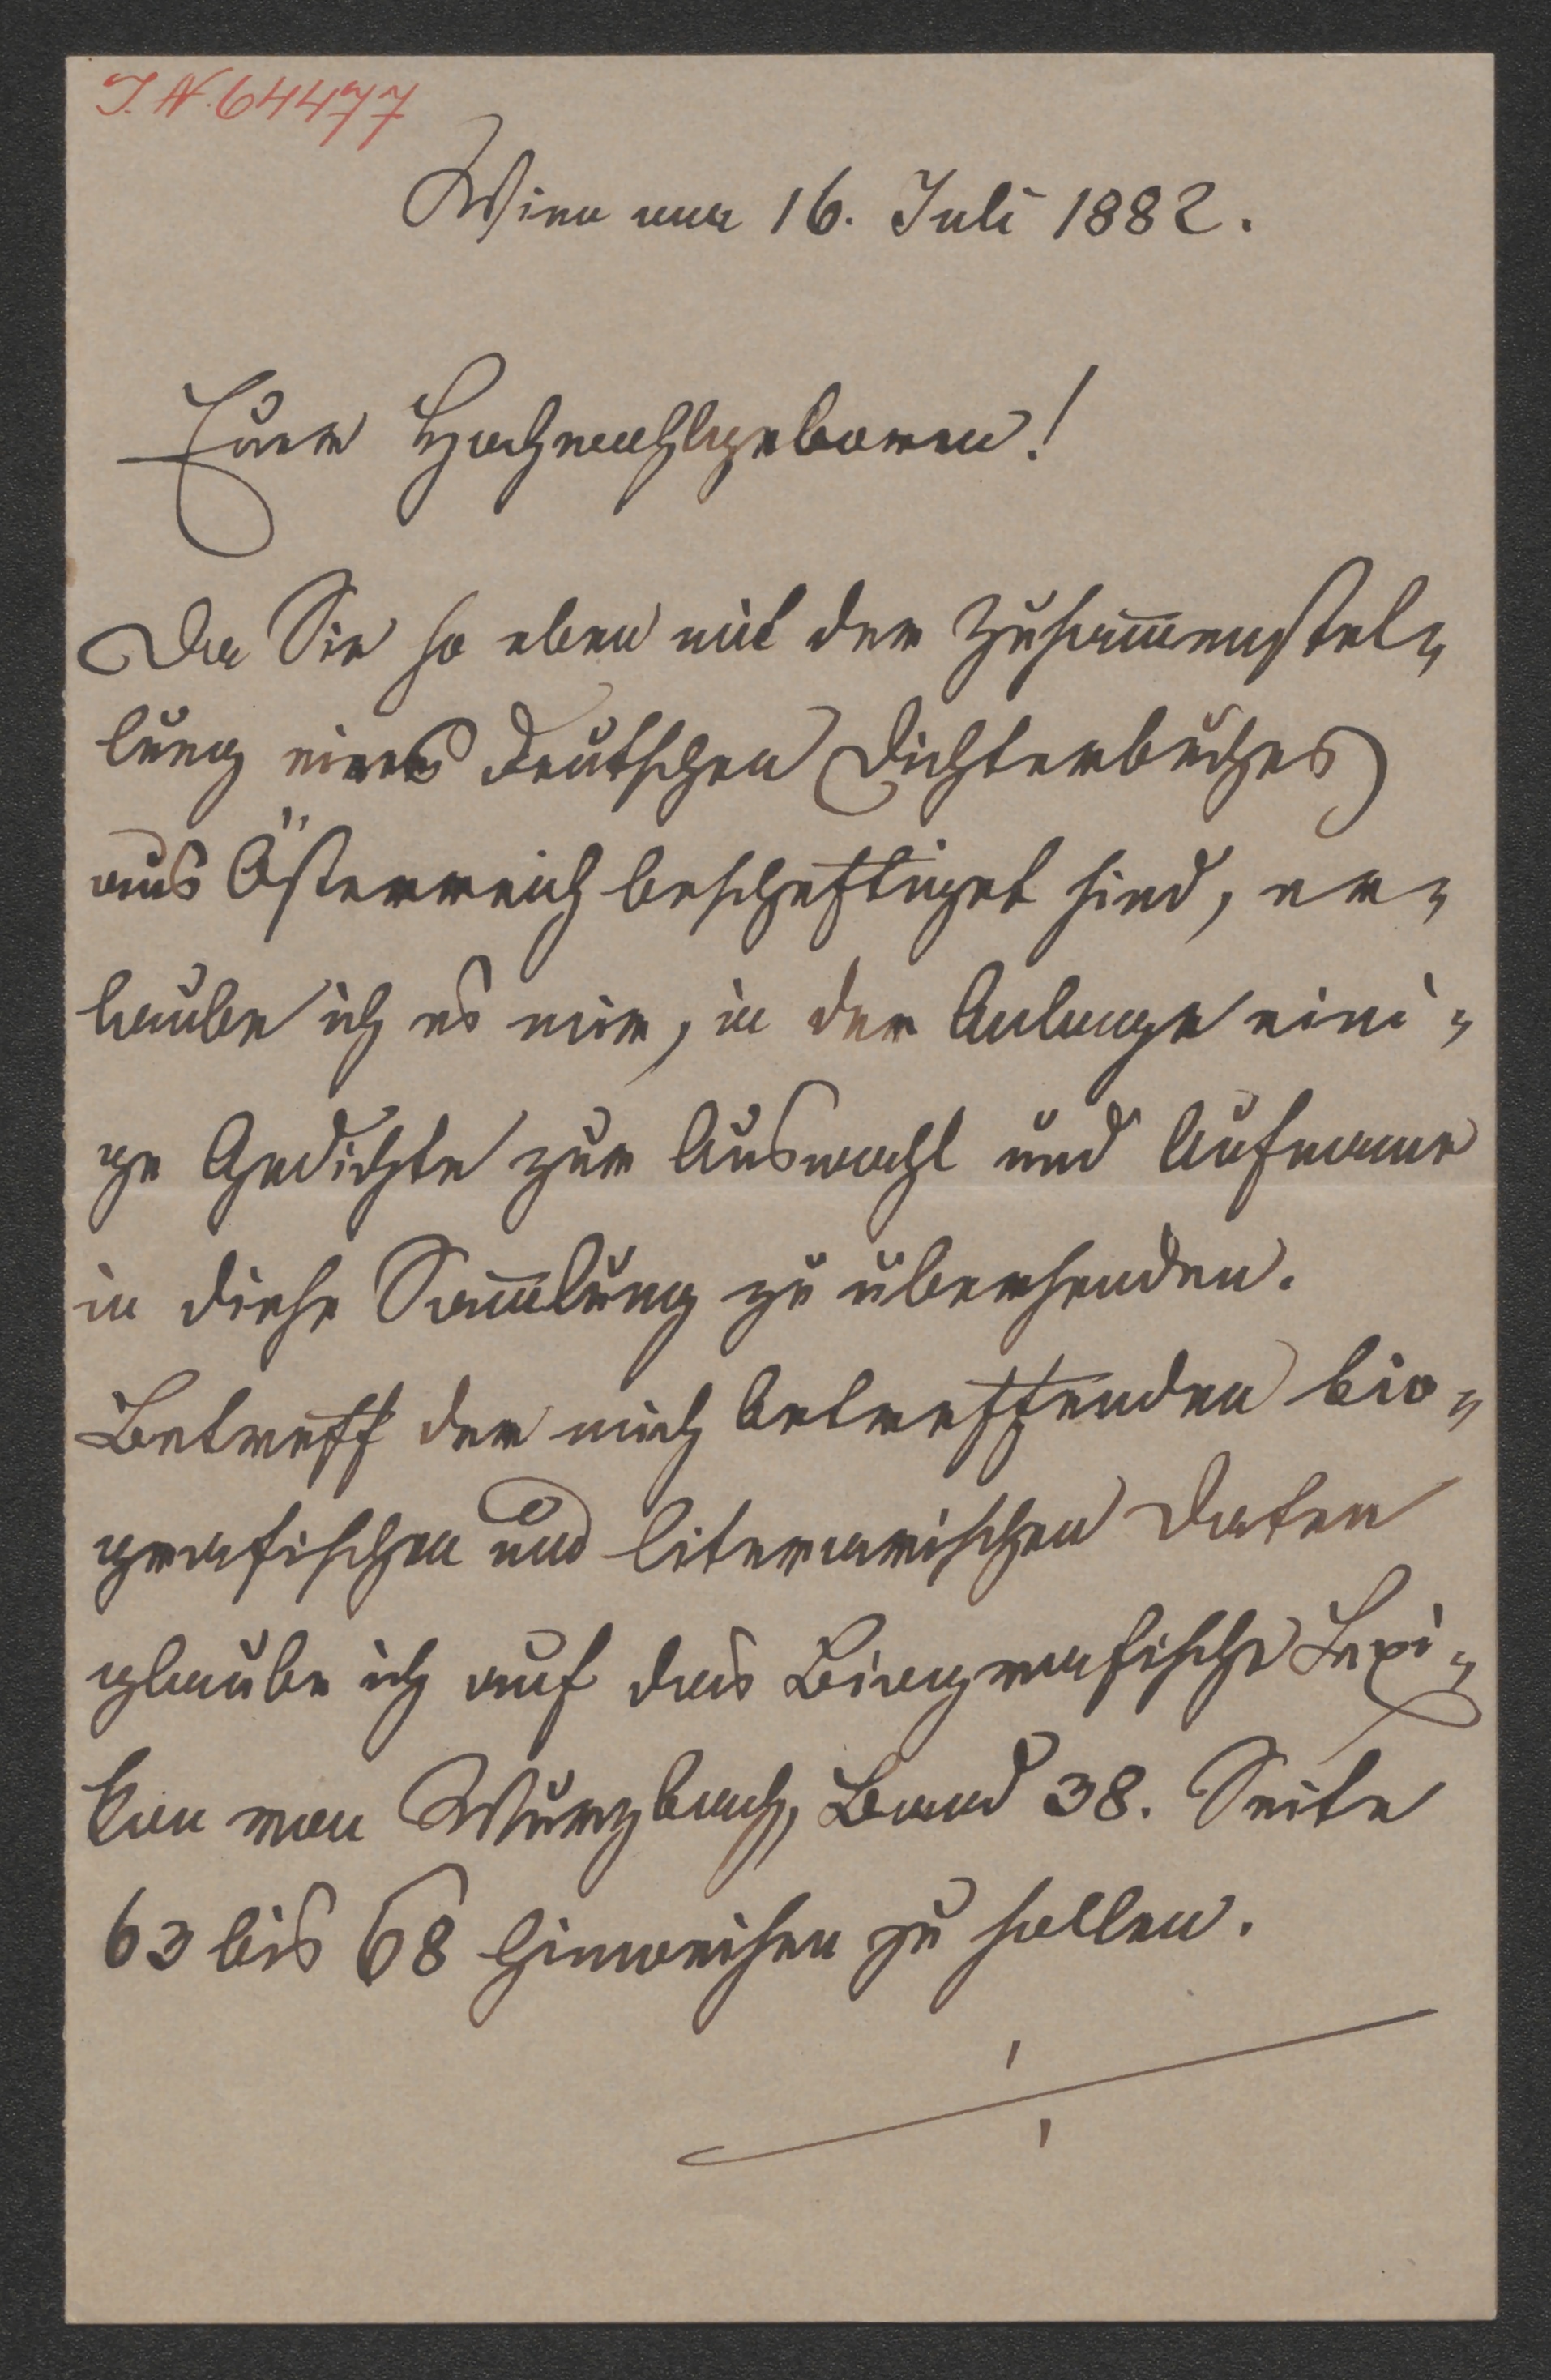 I. N. 64477
Wien am 16. Juli 1882.
Euer Hochwohlgeboren!
Da Sie so eben mit der Zusam̄enstel-
lung eines Deutschen Dichterbuches
aus Österreich beschäftiget sind, er-
laube ich es mir, in der Anlage eini-
ge Gedichte zur Auswahl und Aufname
in diese Sam̄lung zu übersenden.
Betreff der mich betreffenden bio-
grafischen und literarischen Daten
glaube ich auf das Biografische Lexi-
kon von Wurzbach, Band 38. Seite
63 bis 68 hinweisen zu sollen.